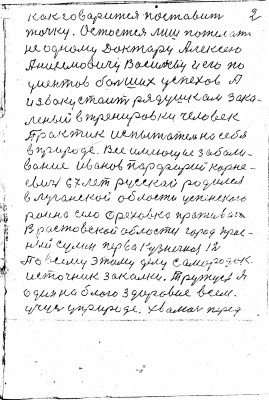 2
как говорится поставит
точку. Остоется лиш пожелат
не одному Доктару Алексею
Анисимовичу Васильву и его по
циентов болших успехов А
стоит ряд зака-
леный в тренировки человек
Практик испытател на себя
в природе. Все имеющие заболи-
вание Иванов Парфирий Корне-
евич 67 лет русский родился
в Луганской области
раина село Ореховка праживает
В растовской области город Крас-
ний сулин перва Кузнечная 12
По всему этому делу самородок
источник закалки. Тружуся Я
один на благо Здаровие всем.
учус у природе. хвалюс перед